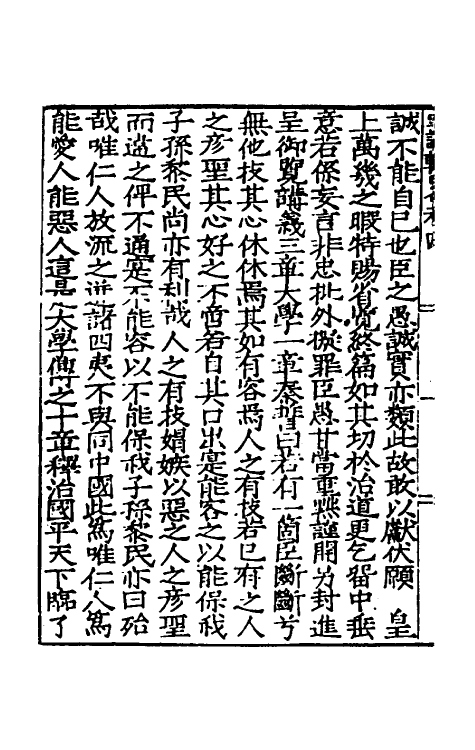 誠不能自已也臣之愚誠實亦類此故敢以獻伏願　皇
上萬幾之暇特賜省覽終篇如其切於治道更乞留中垂
意若係妄言非忠批外擬罪臣愚甘當重黜謹開另封進
呈御覽講義三章大學一章秦誓曰若有一箇臣斷斷兮
無他技其心休休焉其如有容焉人之有技若已有之人
之彥聖其心好之不啻若自其口出寔能容之以能保我
子孫黎民尚亦有利哉人之有技媢嫉以惡之人之彥聖
而違之俾不通寔不能容以不能保我子孫黎民亦曰殆
哉唯仁人放流之迸諸四夷不與同中國此為唯仁人為
能愛人能惡人這是大學傳之十章釋治國平天下臨了